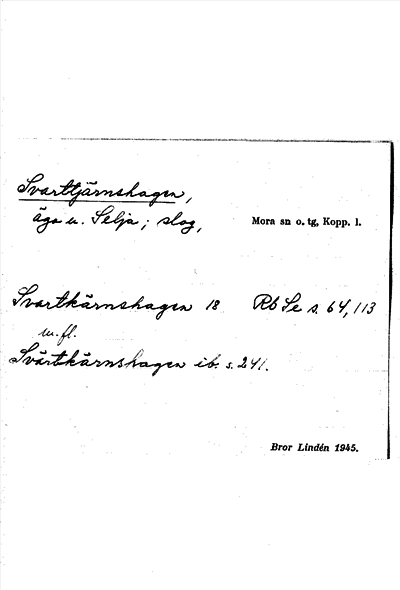 Svarttjärnshagen,
äga u. Selja; slog,
Mora sn o. tg, Kopp. l.
Svartkärnshagen 18 Rb Se s. 64, 113
m.fl.
Svärtkärnshagen ib. s. 241.
Bror Lindén 1945.